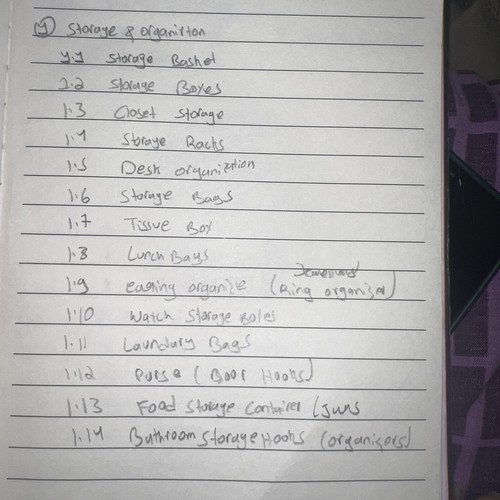 1 Storage & organistion
1.1 Storage Basket
1.2 Storage Boxes
1.3 Closet Storage
1.4 Storage Racks
1.5 Desk organization
1.6 Storage Bags
1.7 Tissue Box
1.8 Lunch Bags
1.9 earring organize (Ring organiser)
1.10 Watch Storage Boles
1.11 Laundary Bags
1.12 Purse (Door Hooks)
1.13 Food Storage Container / Jars
1.14 Bathroom Storage Hooks (organisers)